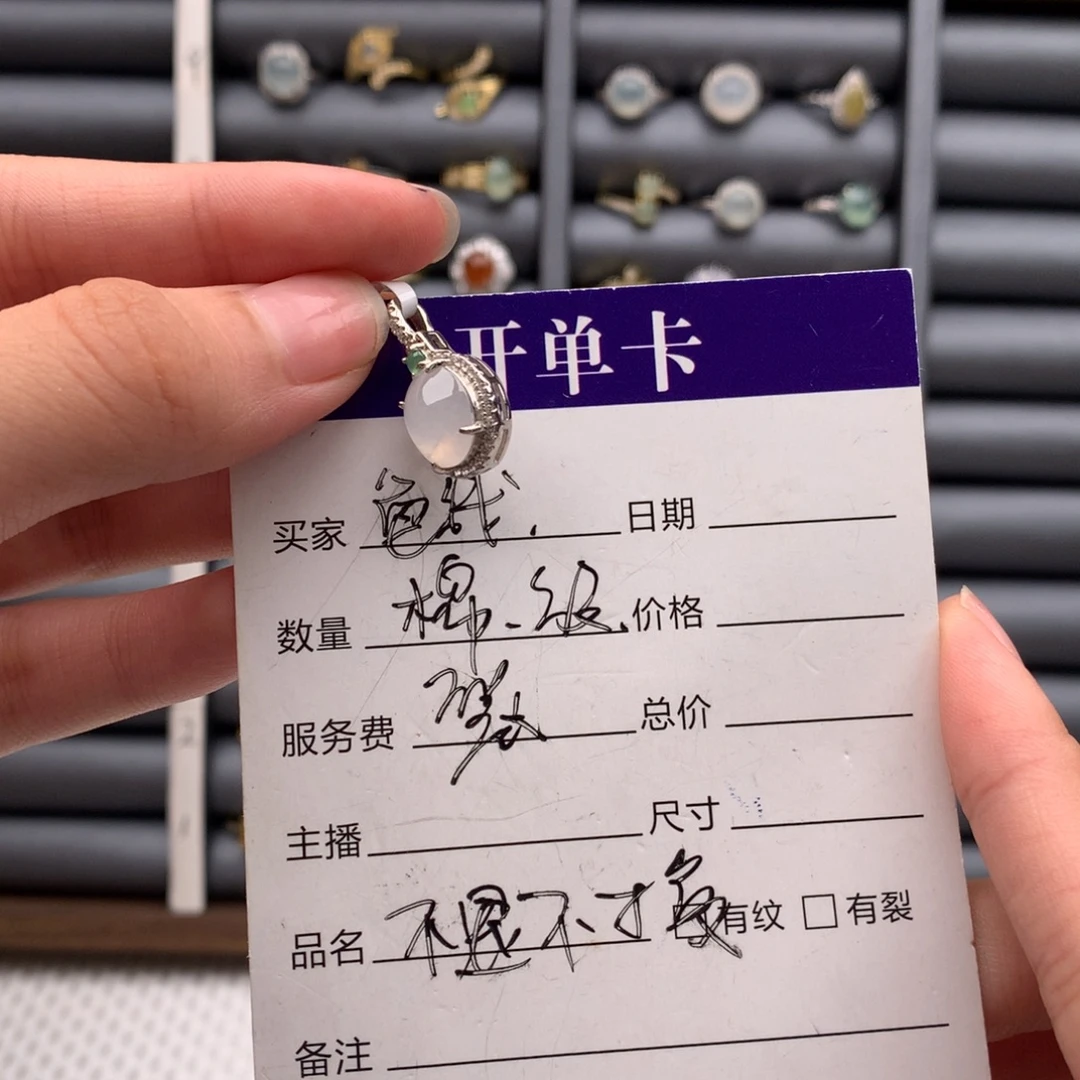 开单卡
买家 色裂. 日期
数量 棉、纹. 价格
服务费 总价
主播 尺寸
品名 不退不 有纹 □有裂
备注